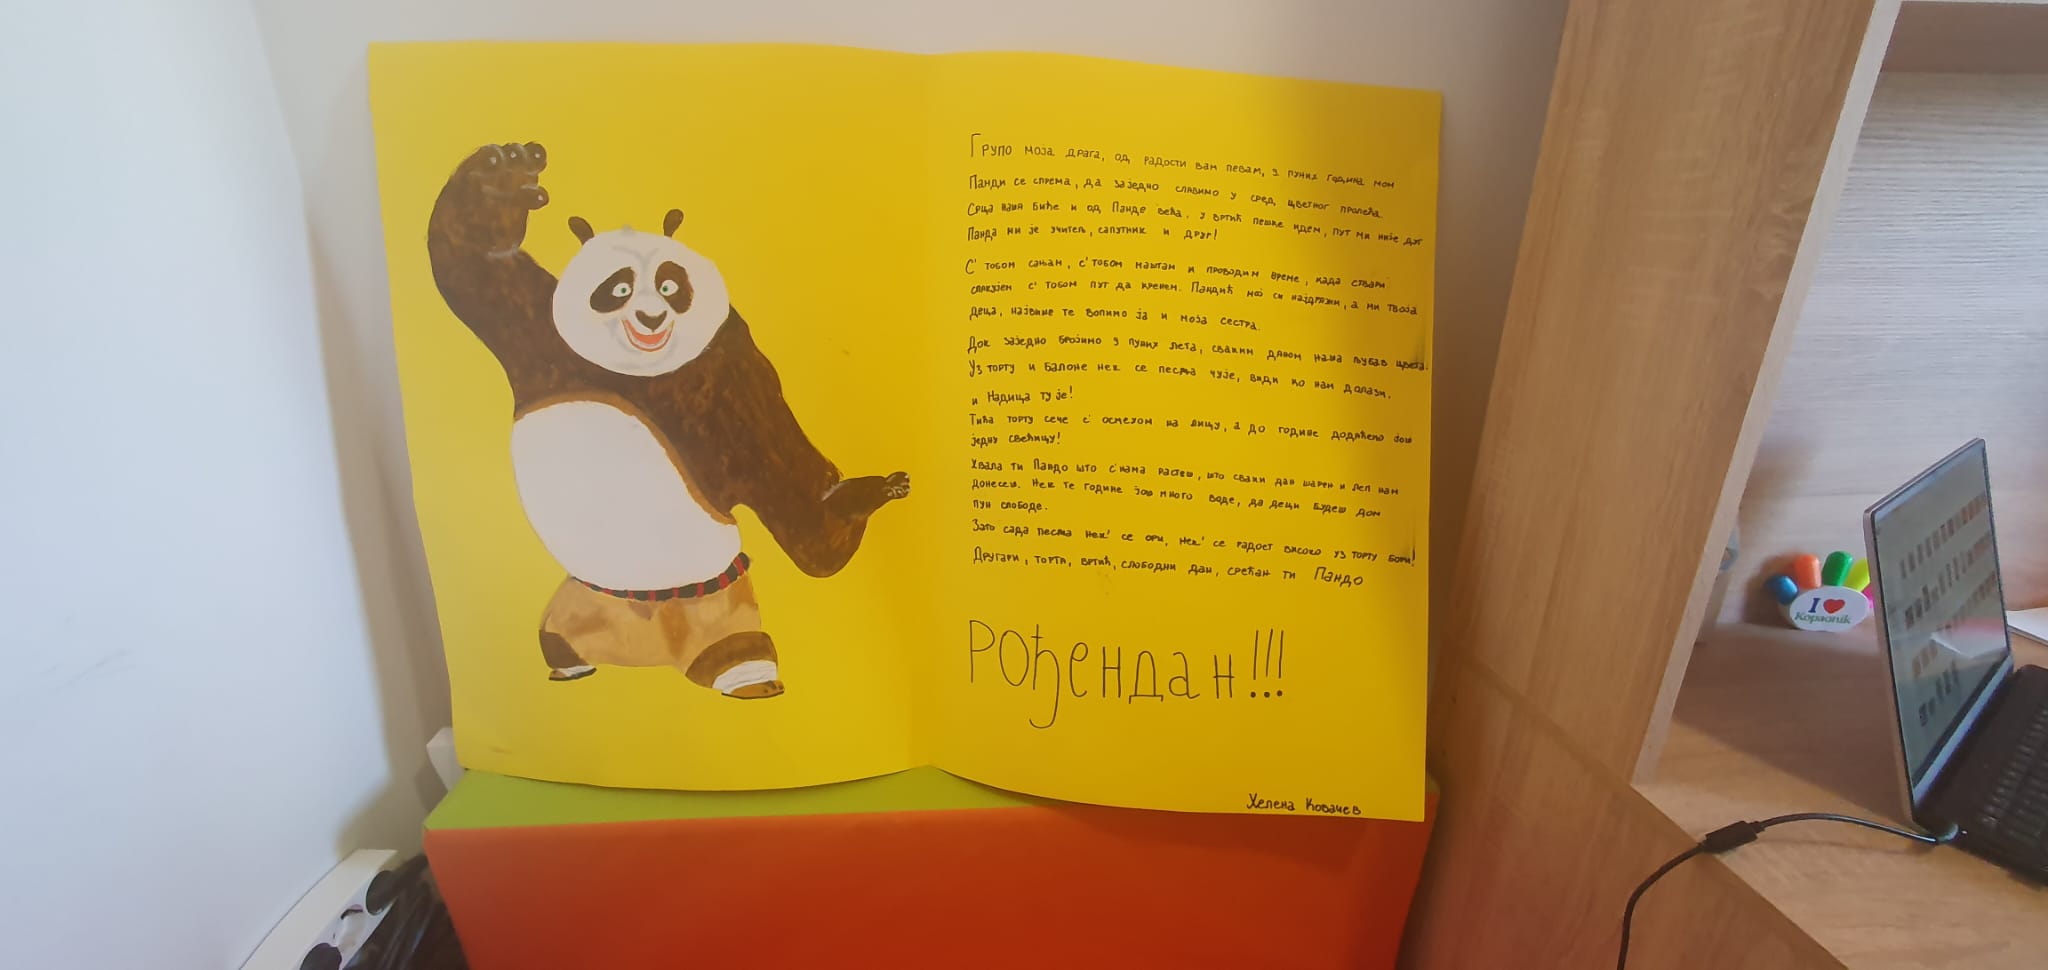 Групо моја драга, од радости вам певам, 9 пуних година мом
Панди се спрема, да заједно славимо у сред цветног пролећа.
Срца наша биће и од Панде већа, у вртић пешке идем, пут ми није дуг
Панда ми је учитељ, сапутник и друг!
С' тобом сањам, с' тобом маштам и проводим време, када ствари
спакујем с' тобом пут да кренем. Пандић мој си најдражи, а ми твоја
деца, највише те волимо ја и моја сестра.
Док заједно бројимо 9 пуних лета, сваким даном наша љубав цвета.
Уз торту и балоне нек се песма чује, види ко нам долази,
и Надица ту је!
Тића торту сече с' осмехом на лицу, а до године додаћемо још
једну свећицу!
Хвала ти Пандо што с' нама растеш, што сваки дан шарен и леп нам
донесеш. Нек те године још много воде, да деци будеш дом
пун слободе.
Зато сада песма нек' се ори, нек' се радост високо уз торту бори!
Другари, торта, вртић, слободни дан, срећан ти Пандо
РОЂЕНДАН!!!
Хелена Ковачев
I ❤
Kopaonik